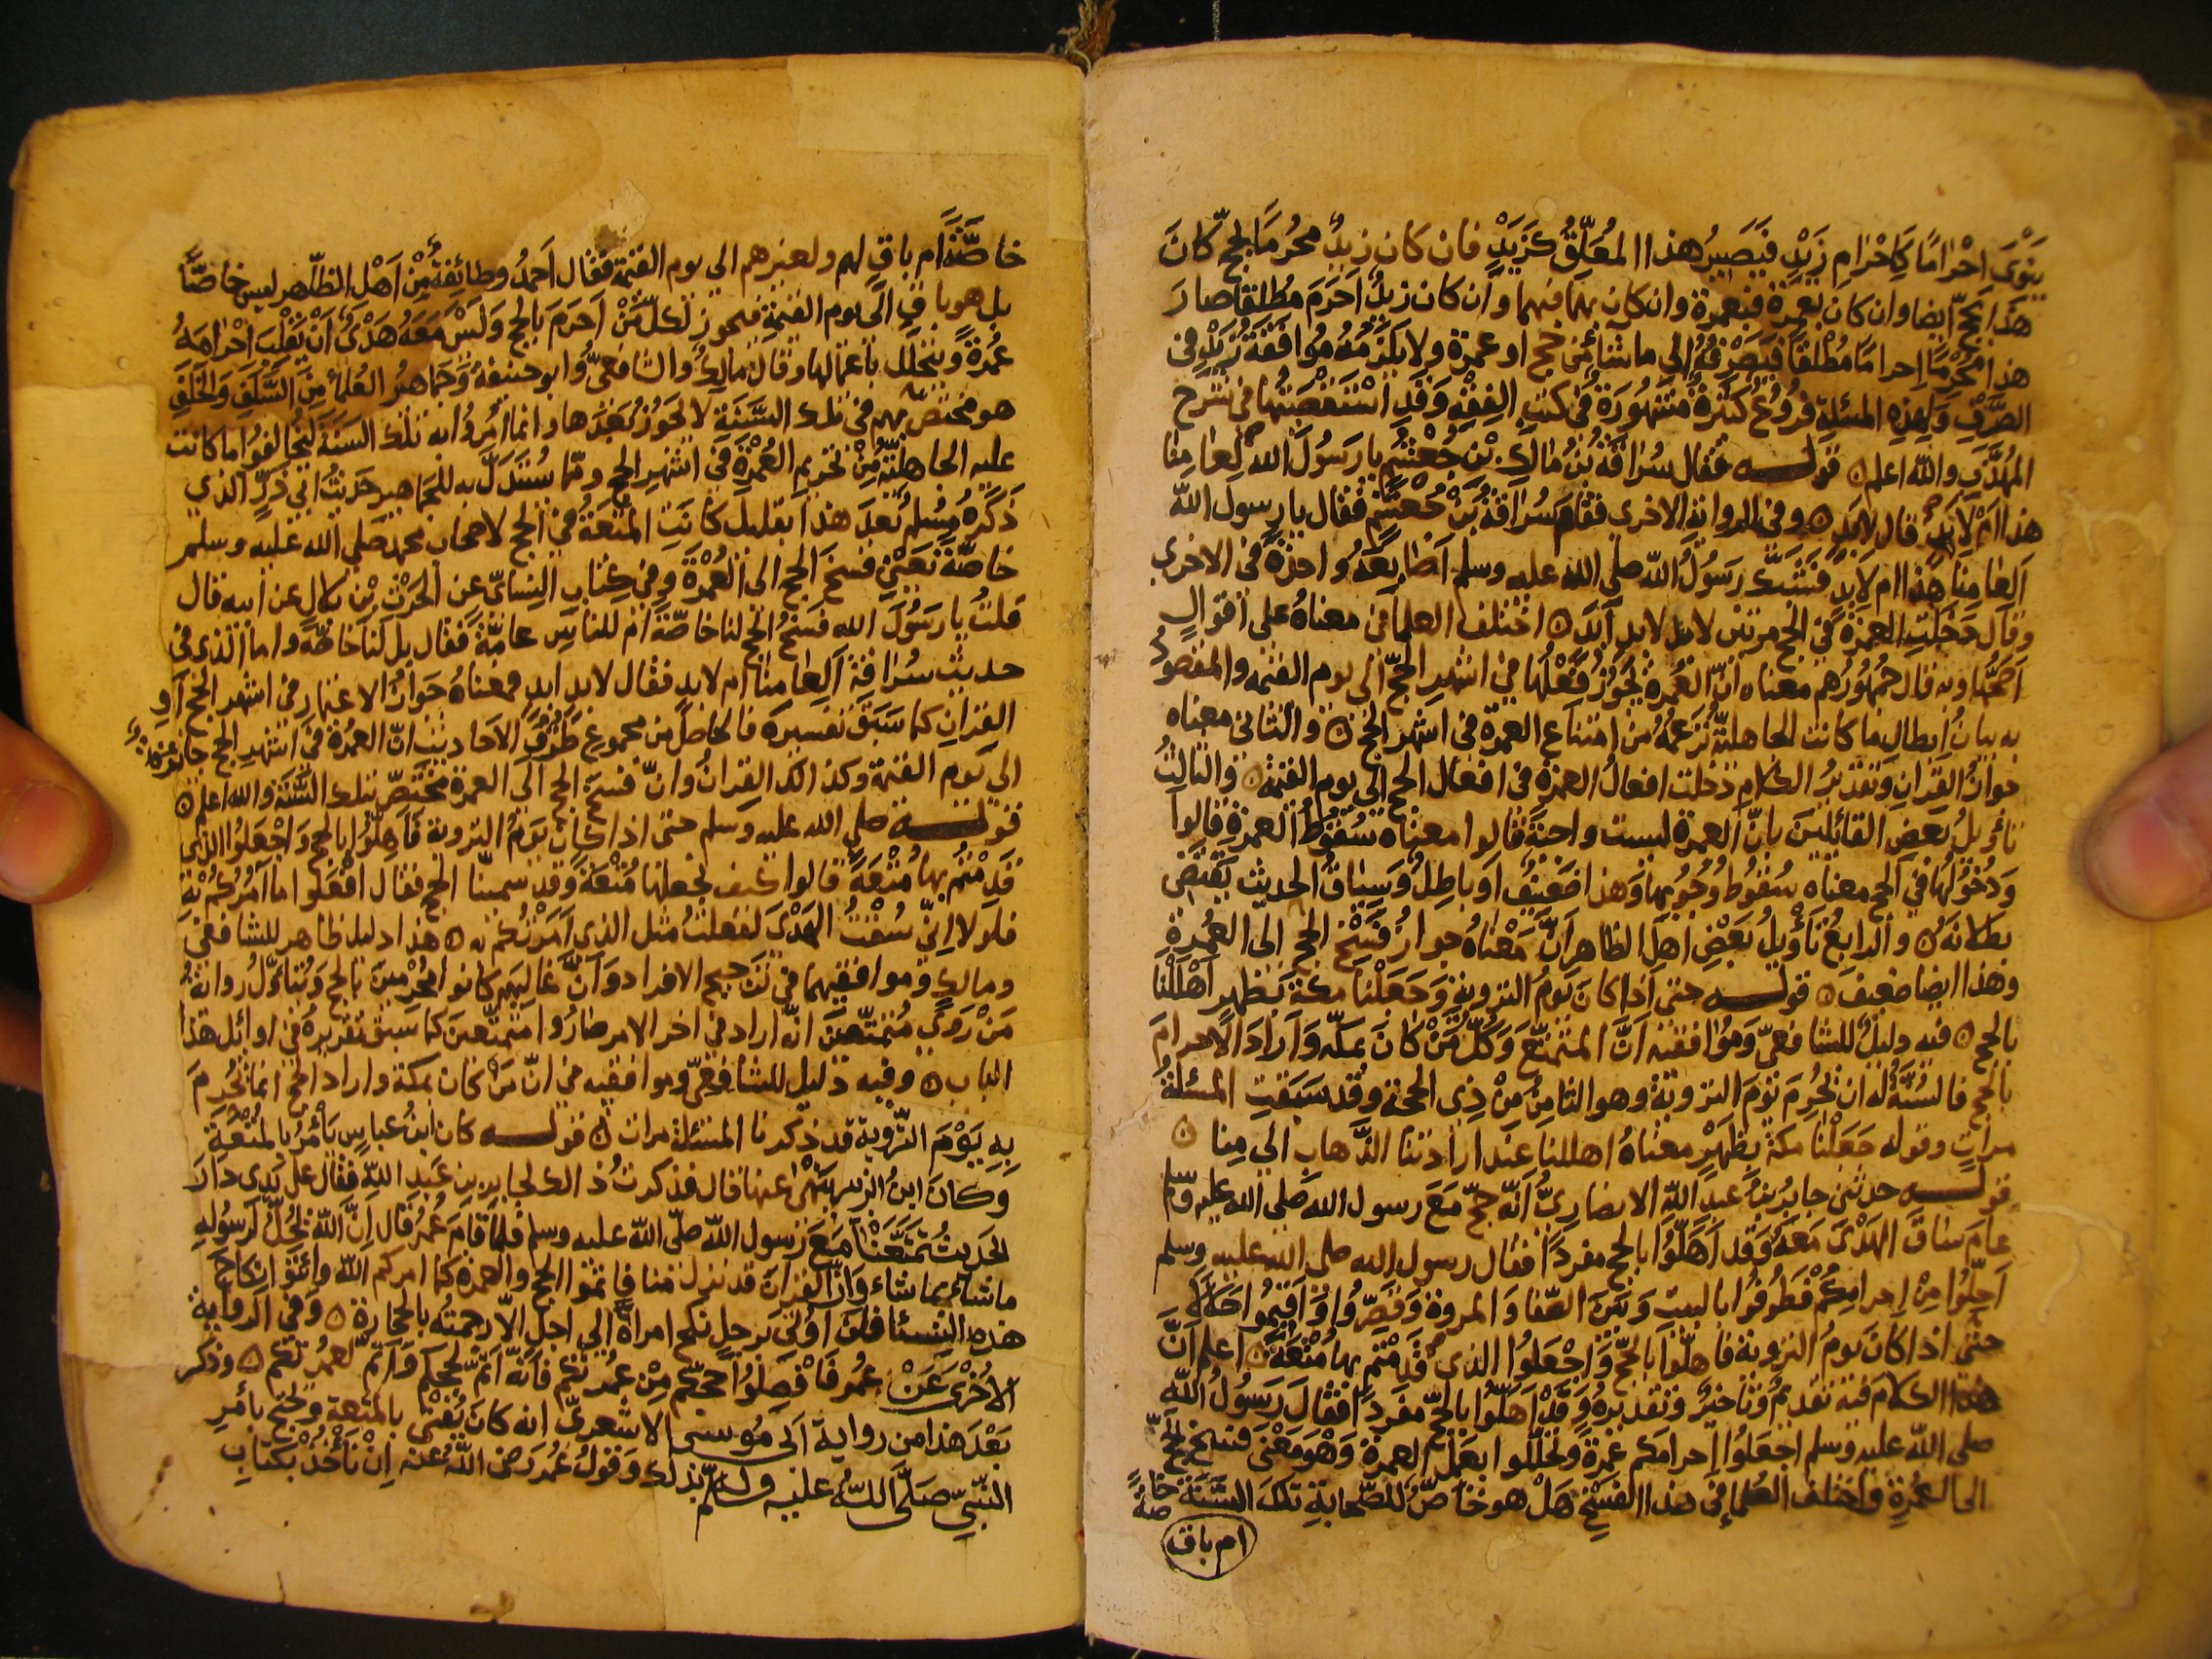 ينوي احراما كاحرام زيد فيصير هذا المعلق كزيد فان كان زيد محرما بالحج كان
هذا بحج ايضا وان كان بعمرة فبعمرة وان كان بهما فبهما وان كان زيد احرم مطلقا صار
هذا محرما احراما مطلقا فيصرفه الى ما شاء من حج او عمرة ولا يلزمه موافقة زيد في
الصرف ولهذه المسئلة فروع كثيرة مشهورة في كتب الفقه وقد استقصيتها في شرح
المهذب والله اعلم قوله فقال سراقة بن مالك بن جعشم يا رسول الله لعامنا
هذا ام لابد قال لابد وفي الرواية الاخرى فقام سراقة بن جعشم فقال يا رسول الله
العامنا هذا ام لابد فشبك رسول الله صلى الله عليه وسلم اصابعه واحدة في الاخرى
وقال دخلت العمرة في الحج مرتين لا بل لابد ابد اختلف العلما في معناه على اقوال
اصحها وبه قال جمهورهم معناه ان العمرة يجوز فعلها في اشهر الحج الى يوم القيمة والمقصود
به بيان ابطال ما كانت الجاهلية تزعمه من امتناع العمرة في اشهر الحج والثاني معناه
جواز القران وتقدير الكلام دخلت افعال العمرة في افعال الحج الى يوم القيمة والثالث
تاويل بعض القائلين بان العمرة ليست واجبة قالوا معناه سقوط العمرة قالوا
ودخولها في الحج معناه سقوط وجوبها وهذا ضعيف او باطل وسياق الحديث يقتضي
بطلانه والرابع تأويل بعض اهل الظاهر ان معناه جواز فسخ الحج الى العمرة
وهذا ايضا ضعيف قوله حتى اذا كان يوم التروية وجعلنا مكة بظهر اهللنا
بالحج فيه دليل للشافعي وموافقيه ان المتمتع وكل من كان بمكة واراد الاحرام
بالحج فالسنة له ان يحرم يوم التروية وهو الثامن من ذي الحجة وقد سبقت المسئلة
مرات وقوله جعلنا مكة بظهر معناه اهللنا عند ارادتنا الذهاب الى منا
قوله حدثني جابر بن عبد الله الانصاري انه حج مع رسول الله صلى الله عليه وسلم
عام ساق الهدي معه وقد اهلوا بالحج مفردا فقال رسول الله صلى الله عليه وسلم
احلوا من احرامكم فطوفوا بالبيت وبين الصفا والمروة وقصروا واقيموا حلالا
حتى اذا كان يوم التروية فاهلوا بالحج واجعلوا الذي قدمتم بها متعة اعلم ان
هذا الكلام فيه تقديم وتاخير وتقديره وقد اهلوا بالحج مفردا فقال رسول الله
صلى الله عليه وسلم اجعلوا احرامكم عمرة وتحللوا بعمل العمرة وهو معنى فسخ الحج
الى العمرة واختلف العلما في هذا الفسخ هل هو خاص للصحابة تلك السنة خاصة
ام باق
خاصة ام باق لهم ولغيرهم الى يوم القيمة فقال احمد وطائفة من اهل الظاهر ليس خاصا
بل هو باق الى يوم القيمة فيجوز لكل من احرم بالحج وليس معه هدي ان يقلب احرامه
عمرة ويتحلل باعمالها وقال مالك والشافعي وابو حنيفة وجماهير العلما من السلف والخلف
هو مختص بهم في تلك السنة لا يجوز بعدها وانما امروا به تلك السنة ليخالفوا ما كانت
عليه الجاهلية من تحريم العمرة في اشهر الحج ومما يستدل به للجماهير حديث ابي ذر الذي
ذكره مسلم بعد هذا بقليل كانت المتعة في الحج لاصحاب محمد صلى الله عليه وسلم
خاصة يعني فسخ الحج الى العمرة وفي كتاب النسائي عن الحرث بن بلال عن ابيه قال
قلت يا رسول الله فسخ الحج لنا خاصة ام للناس عامة فقال بل لنا خاصة واما الذي في
حديث سراقة العامنا ام لابد فقال لابد ابد فمعناه جواز الاعتمار في اشهر الحج او
القران كما سبق تفسيره فالحاصل من مجموع طرق الاحاديث ان العمرة في اشهر الحج جائزة
الى يوم القيمة وكذلك القران وان فسخ الحج الى العمرة مختص بتلك السنة والله اعلم
قوله صلى الله عليه وسلم حتى اذا كان يوم التروية فاهلوا بالحج واجعلوا الذي
قدمتم بها متعة قالوا كيف نجعلها متعة وقد سمينا الحج فقال افعلوا ما آمركم به
فلولا اني سقت الهدي لفعلت مثل الذي امرتكم به هذا دليل ظاهر للشافعي
ومالك وموافقيهما في ترجيح الافراد وان غالبهم كانوا محرمين بالحج ويتأول رواية
من روى متمتعين انه اراد في اخر الامر صاروا متمتعين كما سبق تقريره في اوائل هذا
الباب وفيه دليل للشافعي وموافقيه في ان من كان بمكة واراد الحج انما يحرم
به يوم التروية قد ذكرنا المسئلة مرات قوله كان ابن عباس يأمر بالمتعة
وكان ابن الزبير ينهى عنها قال فذكرت ذلك لجابر بن عبد الله فقال على يدي دار
الحديث تمتعنا مع رسول الله صلى الله عليه وسلم فلما قام عمر قال ان الله يحل لرسوله
ما شاء بما شاء وان القران قد نزل منا فاتموا الحج والعمرة كما امركم الله وابتوا نكاح
هذه النساء فلن اوتى برجل نكح امراة الى اجل الا رجمته بالحجارة وفي الرواية
الاخرى عن عمر فافصلوا حجكم من عمرتكم فانه اتم لحجكم واتم لعمرتكم وذكر
بعد هذا من رواية ابي موسى الاشعري انه كان يفتي بالمتعة ويحتج بأمر
النبي صلى الله عليه وسلم بذلك وقول عمر رضي الله عنه ان نأخذ بكتاب